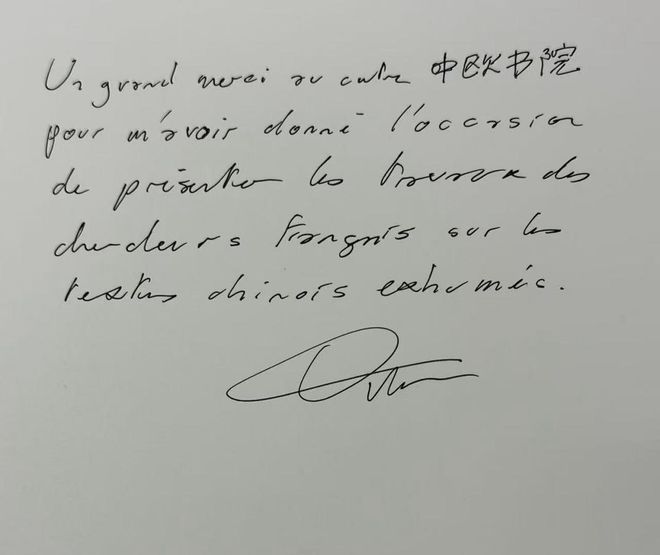 Un grand merci au centre 中欧书院
pour m'avoir donné l'occasion
de présenter les travaux des
chercheurs français sur les
textes chinois exhumés.